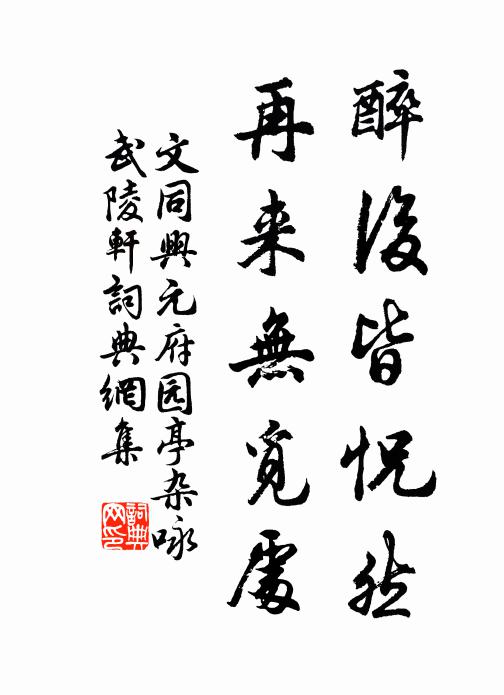 醉後皆怳然
再来無覓處
文同興元府园亭杂咏
武陵軒詞典網集
詞典网印